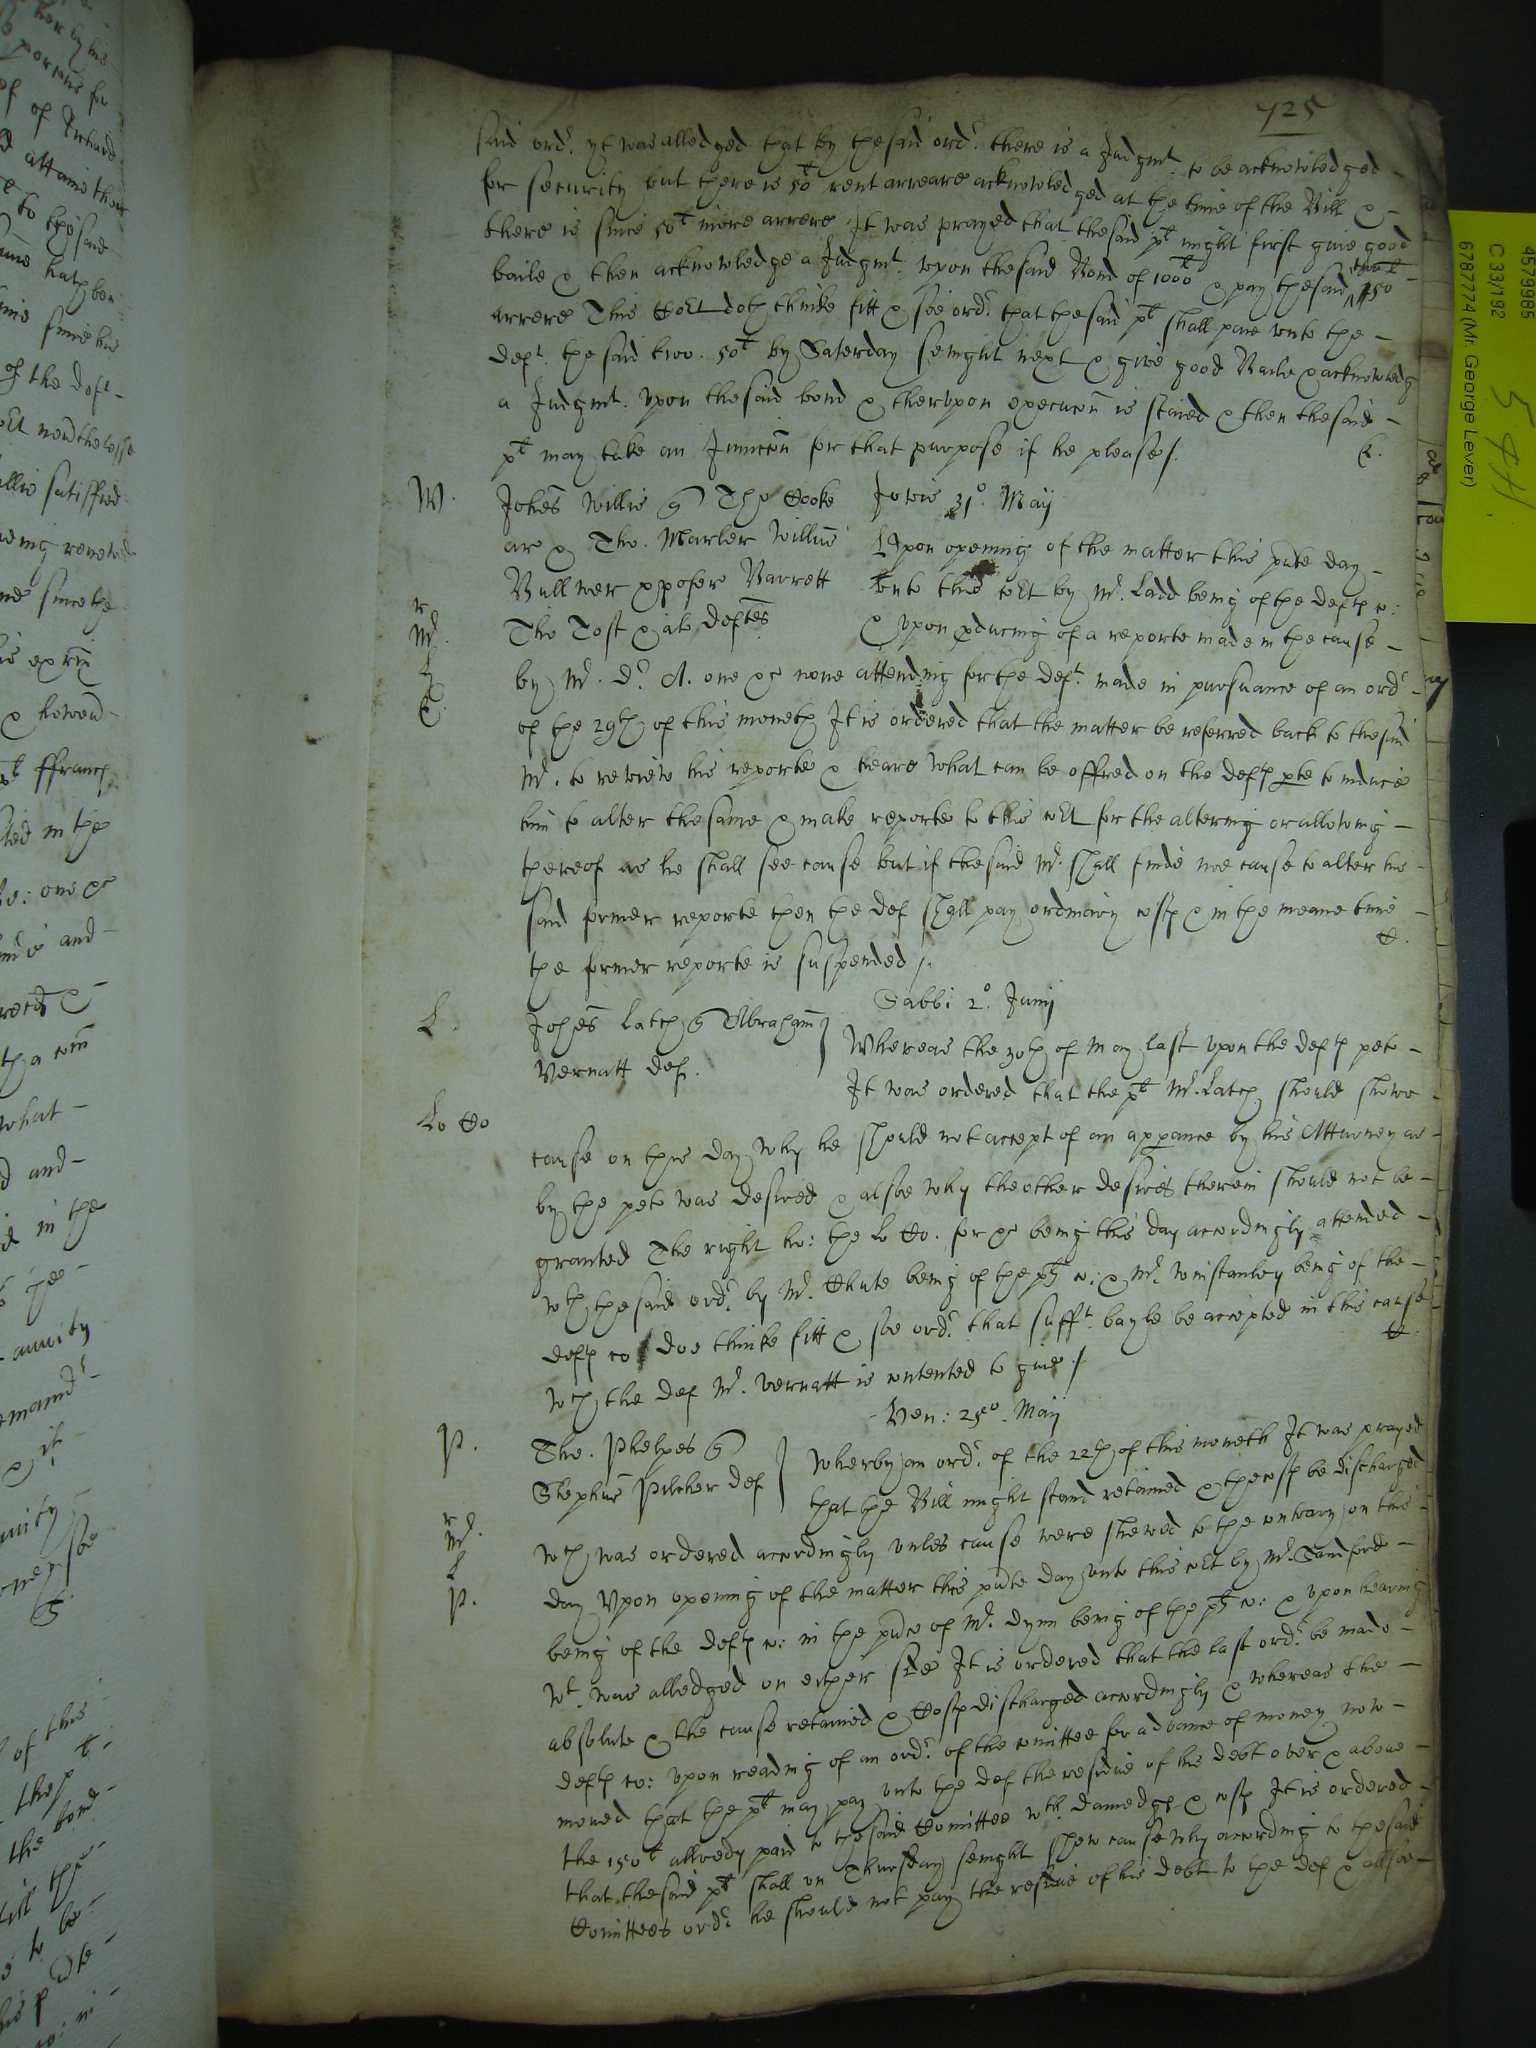 725
said ordr. yt was alledged that by the said ordr. there is a Judgmt. to be acknowledged
for security but there is 50l rent arreare acknowledged at the time of the Bill &
there is since 50l more arrere It was prayed that the said plt might first give good
baile & then acknowledge a Judgmt. upon the said Bond of 1000l & pay the said 50
arrere This Court doth thinke fitt & soe ordr. that the said plt shall paie unto the
deft. the said two. 50l by Saterday senight next & give good Baile & acknowledg
a Judgmt. upon the said bond & therupon execucon is staied & then the said
plt may take an Iniuncon for that purpose if he please /.
W.
Johes Willis Tho Cooke Jovis 31o. Maij
ar & Tho. Marler Willm Upon opening of the matter this pnte day
Bullmer Barrett unto this Court by Mr. Ladd being of the defts co:
Mr.
Tho Tost & al deftes & upon pducing of a reporte made in the cause
by Mr. Dr. A. one &c none attending for the deft. made in pursuance of an ordr
of the 29th of this moneth It is ordered that the matter be referred back to the said
Mr. to reveiw his reporte & heare what can be offred on the defts pte to induce
him to alter the same & make reporte to this Court for the altering or allowing
thereof as he shall see cause but if the said Mr. shall finde noe cause to alter his
said former reporte then the def shall pay ordinary costs & in the meane time
the former reporte is suspended /.
Sabbi 2o. Junij
L.
Johes Latch Abraham
Whereas the 30th of May last upon the defts peto
Vernatt def.
It was ordered that the plt Mr. Latch should shewe
Lo Co
cause on this day why he should not accept of an apparance by his Atturney as
by the peto was desired & alsoe why the other desires therein should not be
granted The right ho: the Lo Co. for &c being this day accordingly attended
wth the said ordr. by Mr. Chute being of the plts co: & Mr. Winstanley being of the
defts co doe thinke fitt & soe ordr. that sufft. bayle be accepted in this cause
wch the def Mr. Vernatt is contented to give /.
Ven: 25o. Maij
P.
Tho. Phelpes
Wherby an ordr. of the 22th of this moneth It was prayed
Stephen Pilcher def
that the Bill might stand retained & the costs be discharged
Mr.
wch was ordered accordingly unles cause were shewed to the contrary on this
P.
day Upon opening of the matter this pnte day unto this Court by Mr. Sandford
being of the defts co: in the pnce of Mr. Dynn being of the plts co: & upon hearing
wt. was alledged on either side It is ordered that the last ordr. be made
absolute & the cause retained & Costs discharged accordingly & whereas the
defts co: upon reading of an ordr. of the comittee for advance of money now
moved that the plt may pay unto the def the residue of his debt over & above
the 150l allredy paid to the said Comittee wth damedges & costs It is ordered
that the said plt shall on Thursday senight shew cause why according to the said
Comittees ordr. he should not pay the residue of his debt to the def & allsoe
4579985
C 33/192
6787774 (Mr. George Lever)